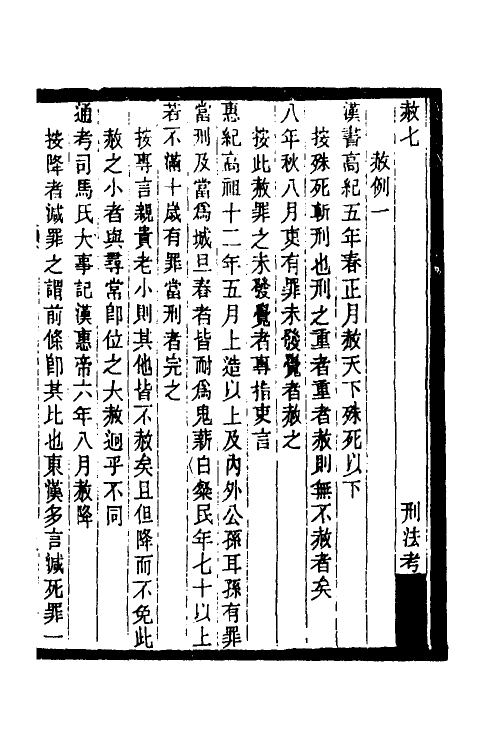 赦七　刑法考
赦例一
漢書高紀五年春正月赦天下殊死以下
按殊死斬刑也刑之重者重者赦則無不赦者矣
八年秋八月吏有罪未發覺者赦之
按此赦罪之未發覺者專指吏言
惠紀高祖十二年五月上造以上及內外公孫耳孫有罪
當刑及當爲城旦舂者皆耐爲鬼薪白粲民年七十以上
若不滿十歲有罪當刑者完之
按專言親貴老小則其他皆不赦矣且但降而不免此
赦之小者與尋常卽位之大赦迥乎不同
通考司馬氏大事記漢惠帝六年八月赦降
按降者減罪之謂前條卽其比也東漢多言減死罪一